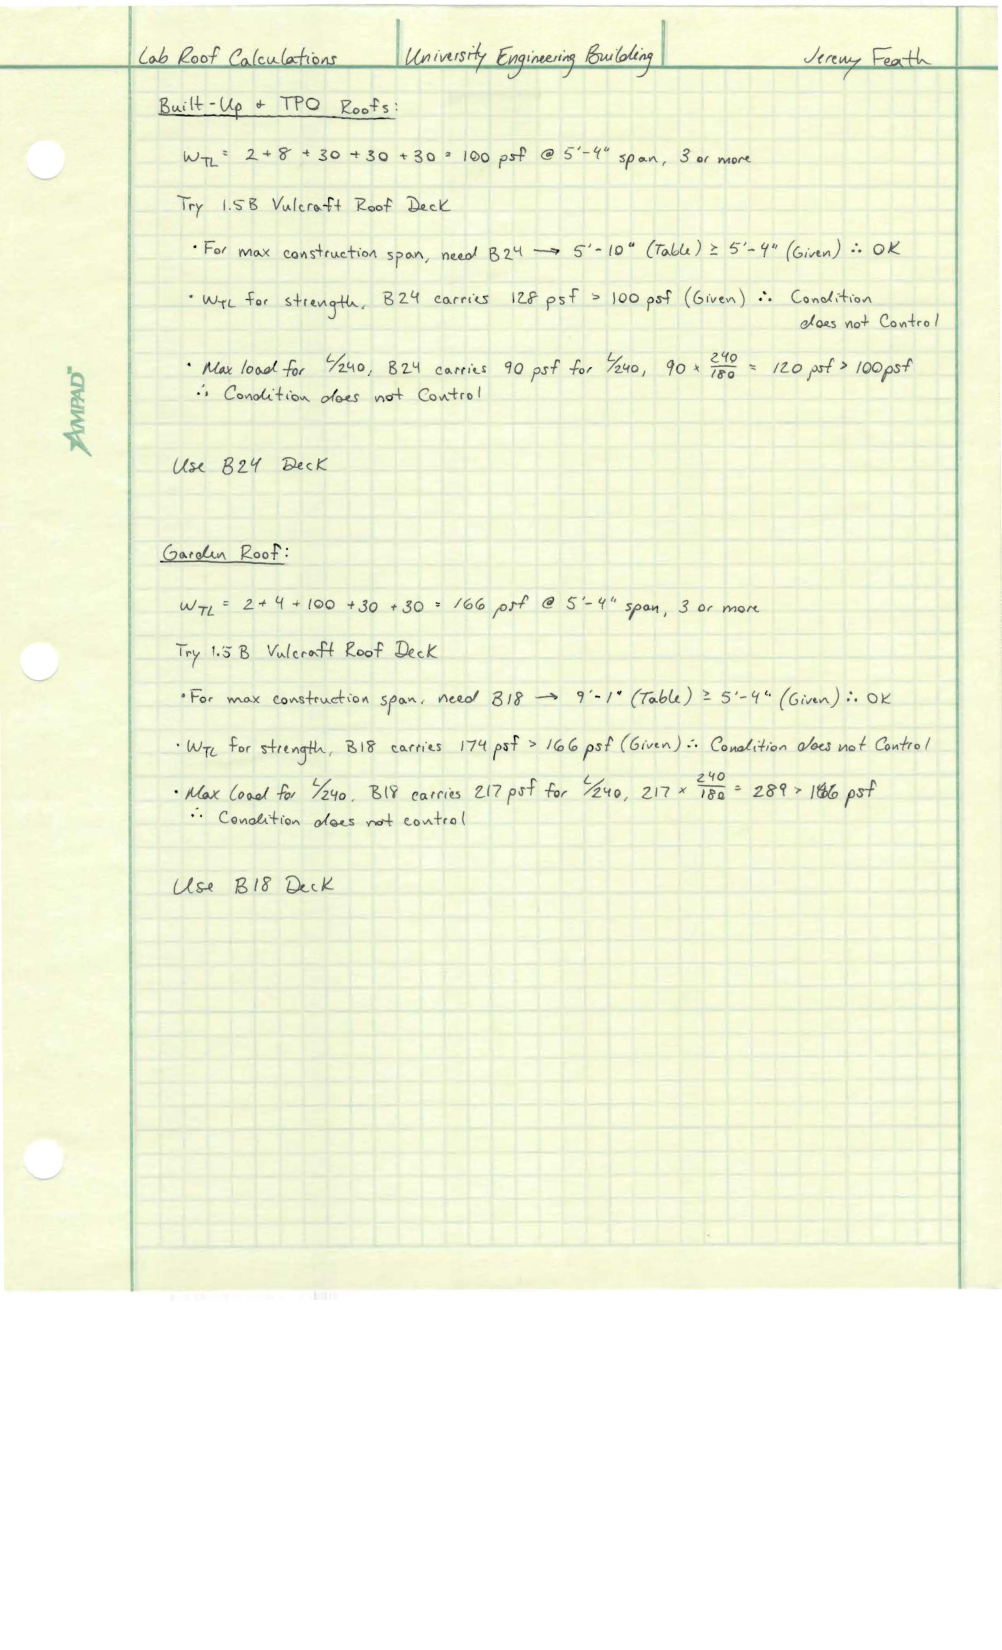 Lab Roof Calculations University Engineering Building Jeremy Feath
Built-Up + TPO Roofs:
WTL = 2 + 8 + 30 + 30 + 30 = 100 psf @ 5'-4" span, 3 or more
Try 1.5B Vulcraft Roof Deck
• For max construction span, need B24 → 5'-10" (Table) ≥ 5'-4" (Given) ∴ OK
• WTL for strength, B24 carries 128 psf > 100 psf (Given) ∴ Condition
does not Control
• Max load for L/240, B24 carries 90 psf for L/240, 90 × 240/180 = 120 psf > 100psf
∴ Condition does not Control
AMPAD™
Use B24 Deck
Garden Roof:
WTL = 2 + 4 + 100 + 30 + 30 = 166 psf @ 5'-4" span, 3 or more
Try 1.5 B Vulcraft Roof Deck
• For max construction span, need B18 → 9'-1" (Table) ≥ 5'-4" (Given) ∴ OK
• WTL for strength, B18 carries 174 psf > 166 psf (Given) ∴ Condition does not Control
• Max Load for L/240, B18 carries 217 psf for L/240, 217 × 240/180 = 289 > 166 psf
∴ Condition does not control
Use B18 Deck